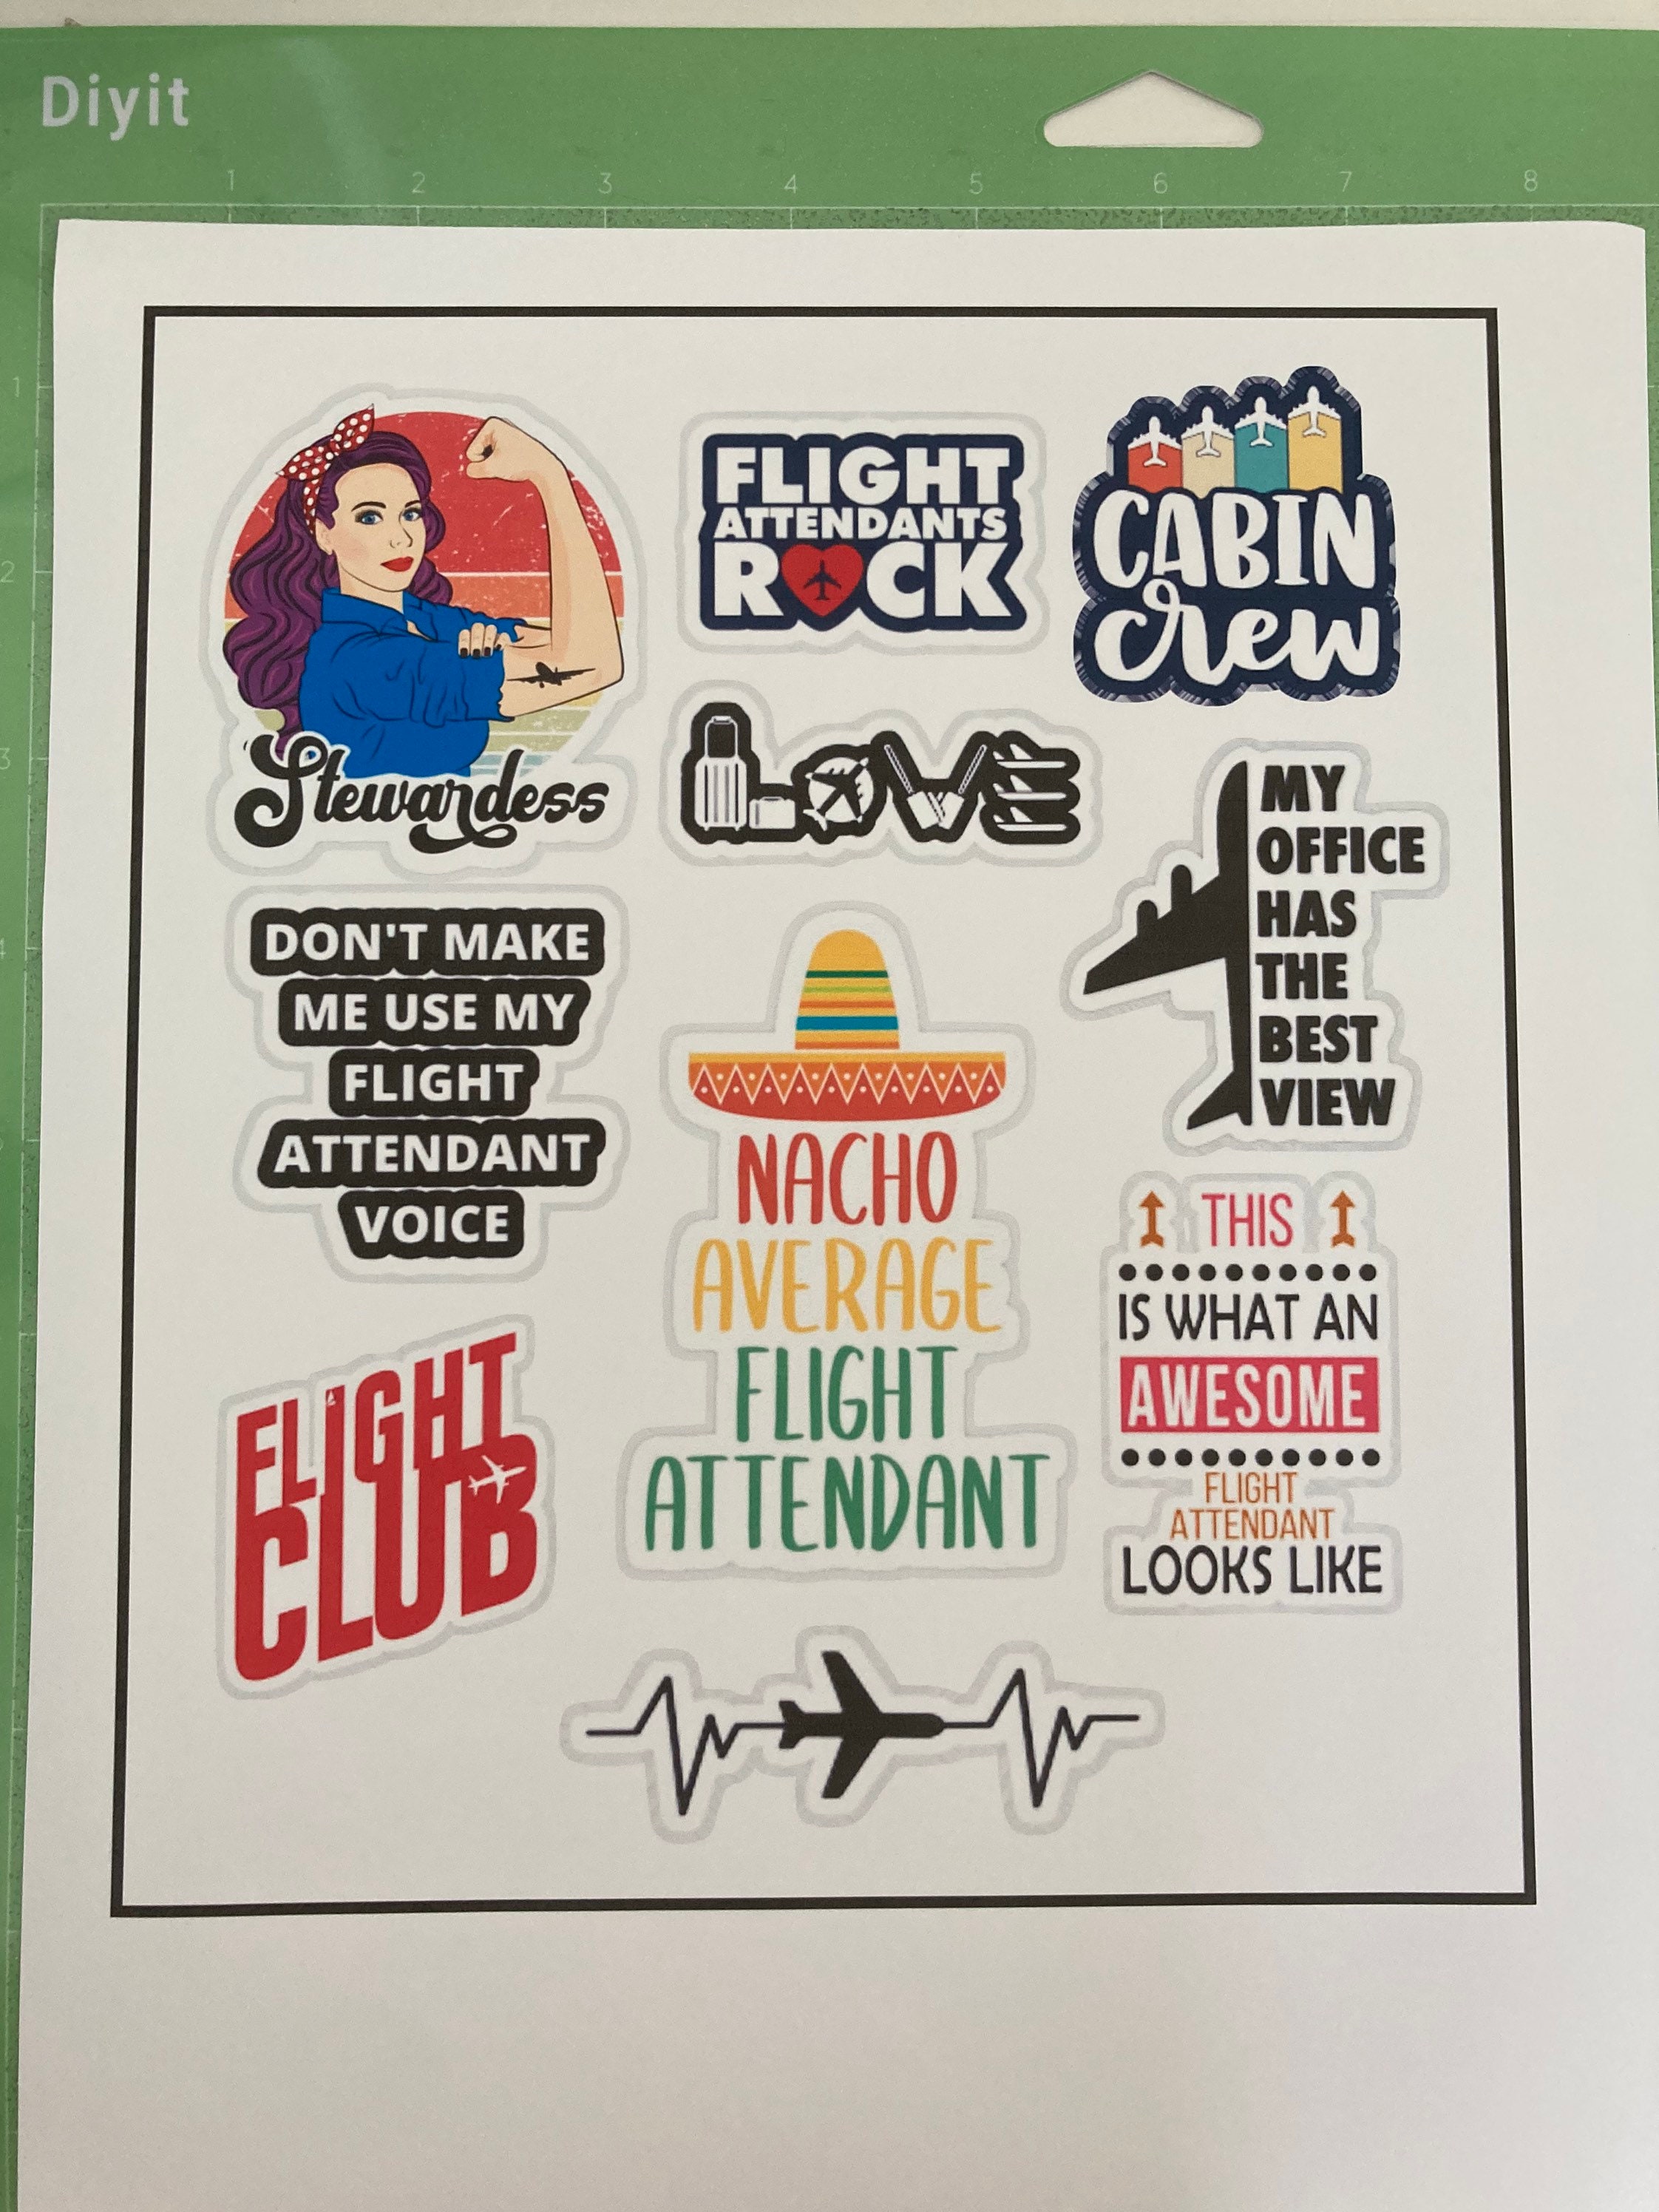 Diyit
1 2 3 4 5 6 7 8
1
2
3
4
Stewardess
FLIGHT
ATTENDANTS
ROCK
CABIN
crew
LOVE
MY
OFFICE
HAS
THE
BEST
VIEW
DON'T MAKE
ME USE MY
FLIGHT
ATTENDANT
VOICE
NACHO
AVERAGE
FLIGHT
ATTENDANT
THIS
IS WHAT AN
AWESOME
FLIGHT
ATTENDANT
LOOKS LIKE
FLIGHT
CLUB